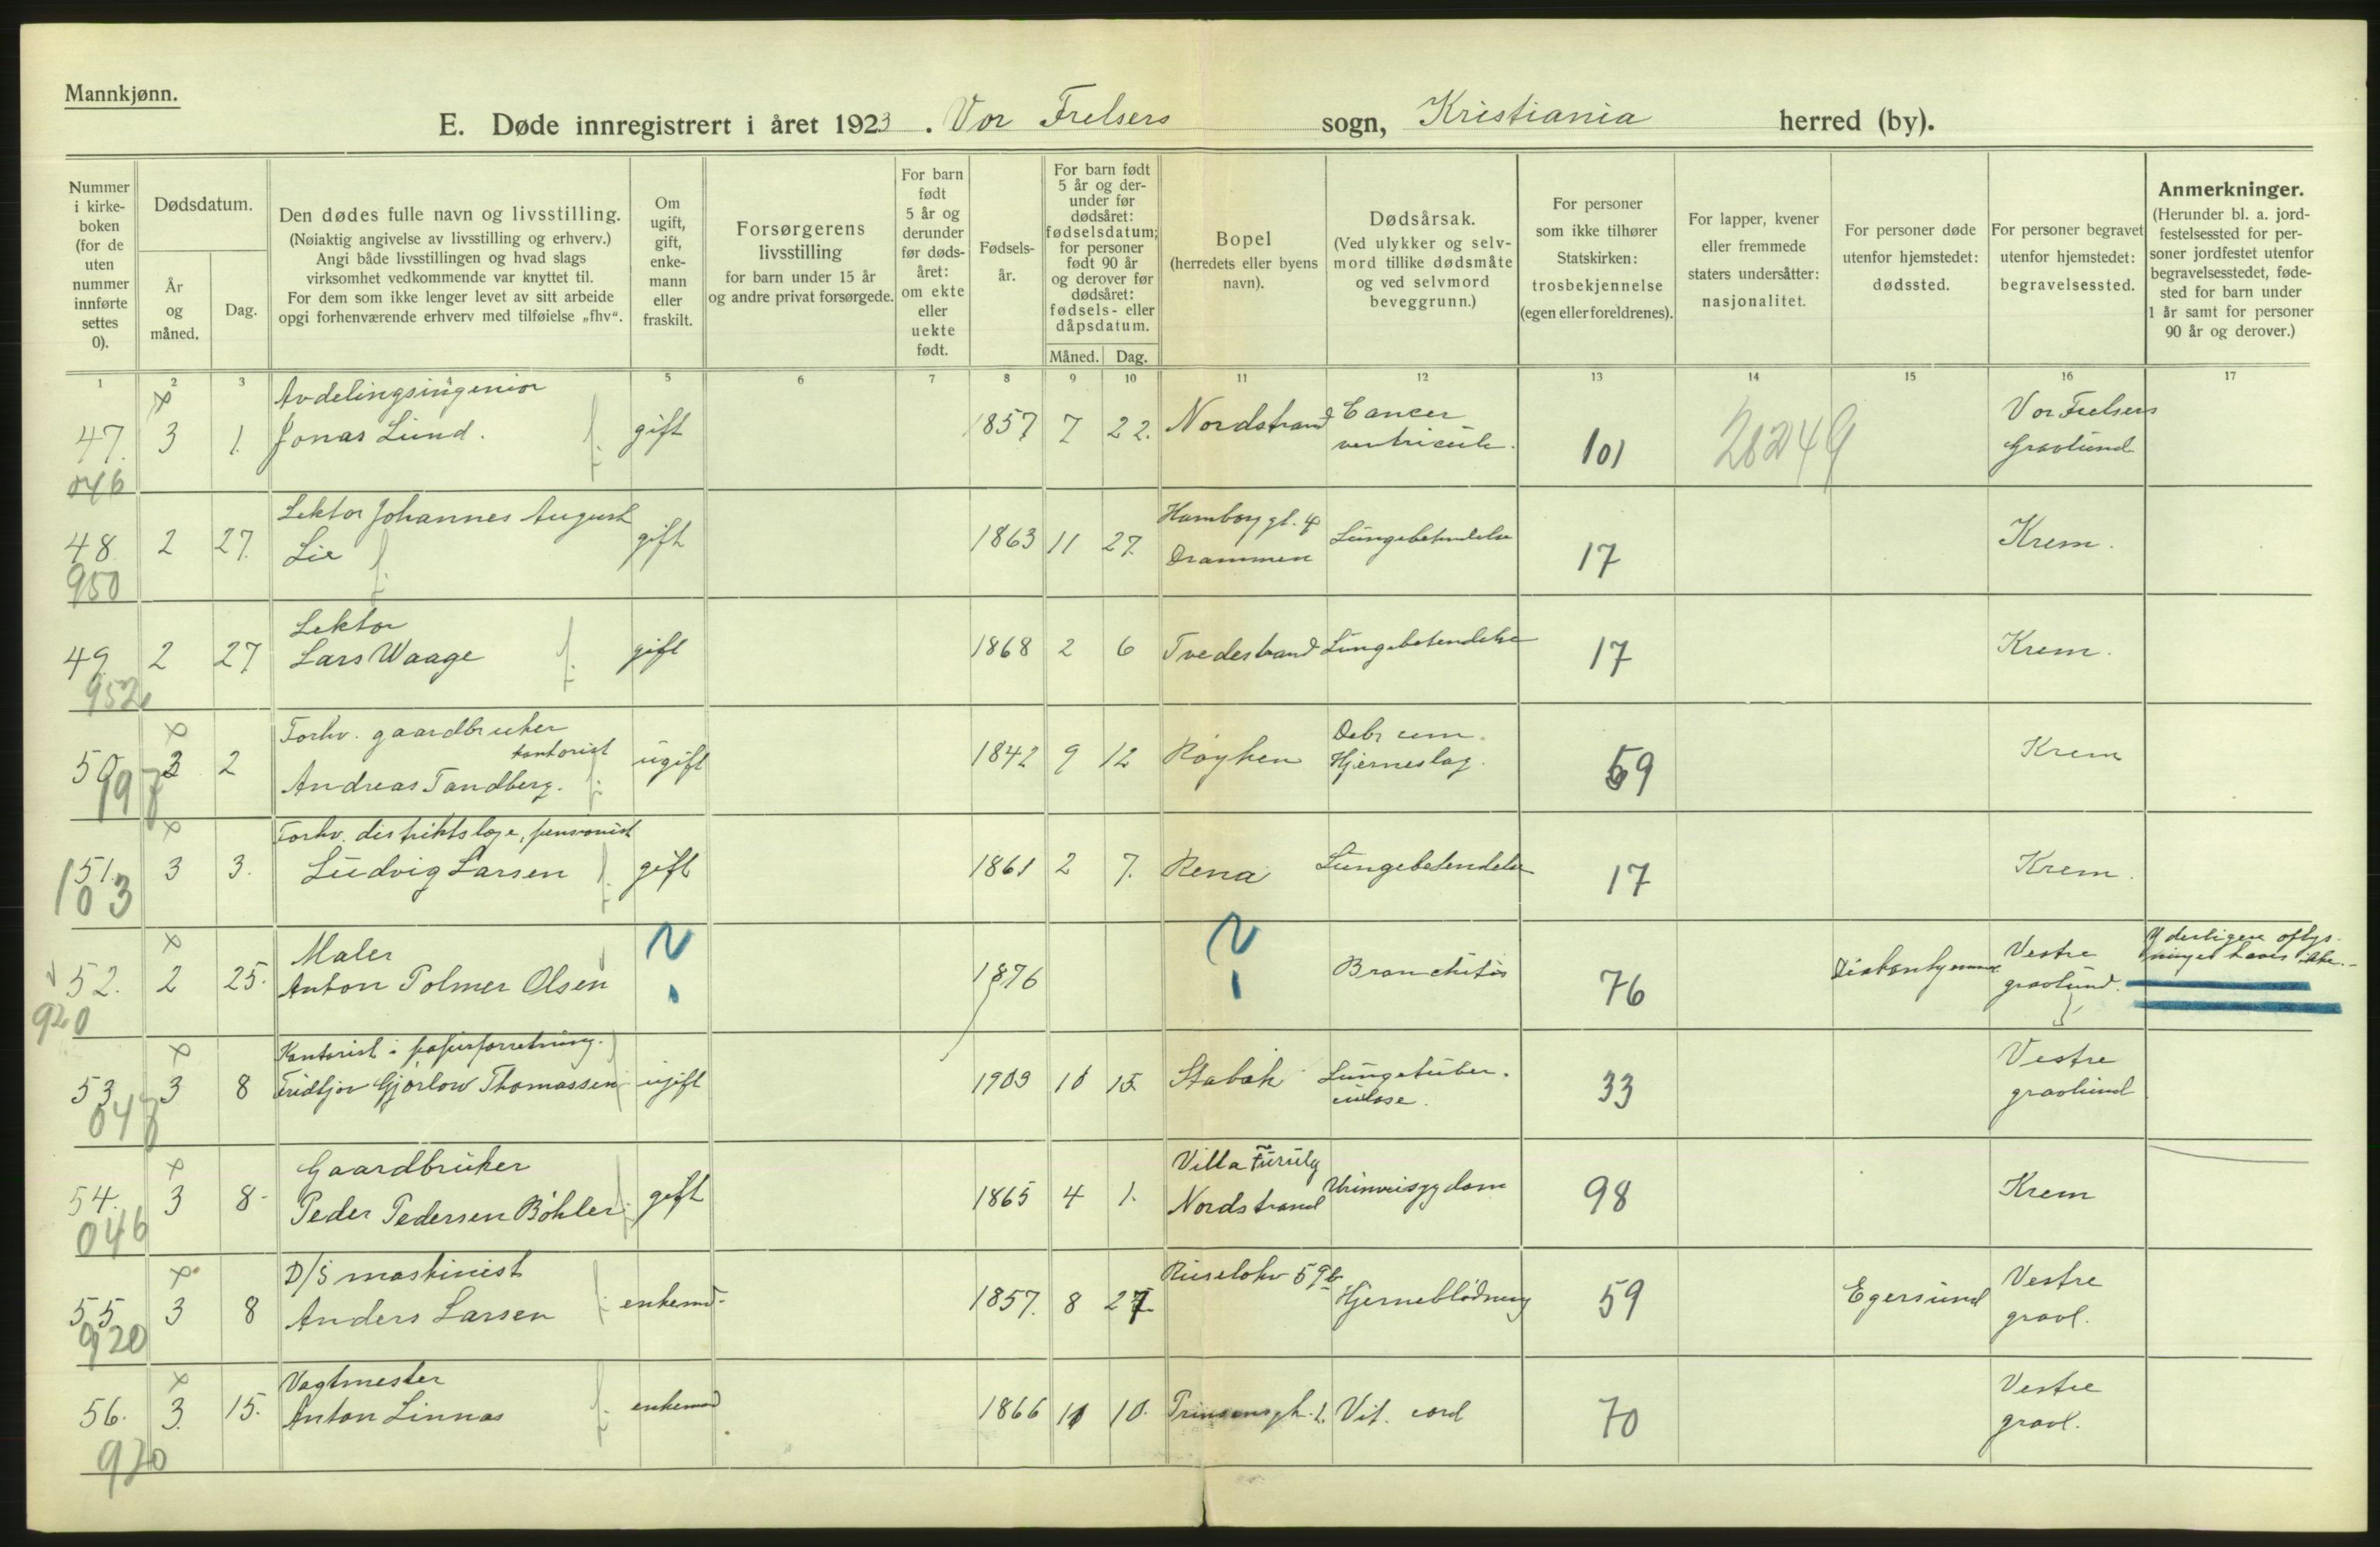 Mannkjønn.
E. Døde innregistrert i året 1923. Vor Frelsers sogn, Kristiania herred (by).
Nummer i kirke-boken (for de uten nummer innførte settes 0).
Dødsdatum.
År og måned.
Dag.
Den dødes fulle navn og livsstilling.
(Nøiaktig angivelse av livsstilling og erhverv.)
Angi både livsstillingen og hvad slags
virksomhet vedkommende var knyttet til.
For dem som ikke lenger levet av sitt arbeide
opgi forhenværende erhverv med tilføielse „fhv“.
Om ugift, gift, enke-mann eller fraskilt.
Forsørgerens livsstilling
for barn under 15 år
og andre privat forsørgede.
For barn født 5 år og derunder før døds-året: om ekte eller uekte født.
Fødsels-år.
For barn født 5 år og der-under før dødsåret: fødselsdatum; for personer født 90 år og derover før dødsåret: fødsels- eller dåpsdatum.
Måned. Dag.
Bopel
(herredets eller byens navn).
Dødsårsak.
(Ved ulykker og selv-mord tillike dødsmåte og ved selvmord beveggrunn.)
For personer som ikke tilhører Statskirken: trosbekjennelse (egen eller foreldrenes).
For lapper, kvener eller fremmede staters undersåtter: nasjonalitet.
For personer døde utenfor hjemstedet: dødssted.
For personer begravet utenfor hjemstedet: begravelsessted.
Anmerkninger.
(Herunder bl. a. jord-festelsessted for per-soner jordfestet utenfor begravelsesstedet, føde-sted for barn under 1 år samt for personer 90 år og derover.)
1 2 3 4 5 6 7 8 9 10 11 12 13 14 15 16 17
x Avdelingsingeniør
47. 3 1. Jonas Lund. gift 1857 7 22. Nordstrand Cancer ventricule. 101 20249 Vor Frelsers Gravlund
046
Lektor Johannes August
48 2 27. Lie gift 1863 11 27. Hamborg gt. 4 Drammen Lungebetendelse 17 Krem.
950
Lektor
49 2 27 Lars Waage gift 1868 2 6 Tvedestrand Lungebetendelse 17 Krem.
952
x Forhv. gaardbruker kontorist
50 3 2 Andreas Tandberg. ugift 1842 9 12 Røyken Debr. Hjerneslag. 59 Krem
x Forhv. distriktslæge, pensionist
51. 3 3. Ludvig Larsen gift 1861 2 7. Rena Lungebetendelse 17 Krem.
103
x Maler
52. 2 25. Anton Polmer Olsen 1876 Bronchitis 76 Diakonhjemmet Vestre gravlund. Yderligere oplys-ninger haves ikke.
920
x Kontorist i papirforretning.
53 3 8 Fridtjov Gjörlow Thomassen ugift 1903 10 15 Stabæk Lungetuber-culose. 33 Vestre gravlund
x Gaardbruker
54. 3 8 Peder Pedersen Böhler gift 1865 4 1. Villa Furuly Nordstrand Urinveisygdom 98 Krem
046
x D/S maskinist
55 3 8 Anders Larsen enkemd. 1857. 8 27 Ruselokv 59b Hjerneblødning 59 Egersund Vestre gravl.
920
x Vagtmester
56. 3. 15. Anton Linnas enkemd 1866 10 10. Prinsensgt. 2. Vit. cord 70 Vestre gravl.
920